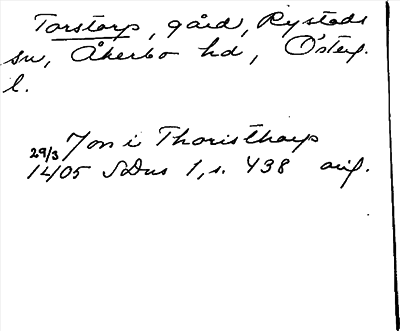 Torstorp, gård, Rystads
sn, Åkerbo hd, Österg.
l.
Jon i Thoristhorp
29/3
1405 SDns 1, s. 438 orig.